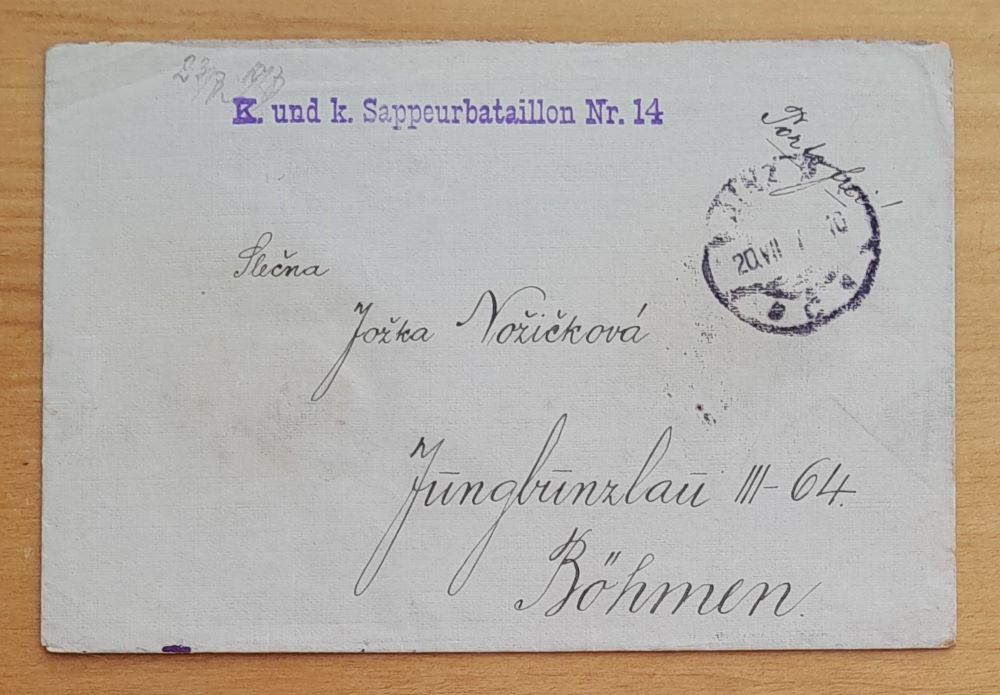 K. und k. Sappeurbataillon Nr. 14
Porto frei!
LINZ
20.VII 10
Slečna
Jožka Nožičková
Jūngbūnzlaū III-64.
Böhmen.